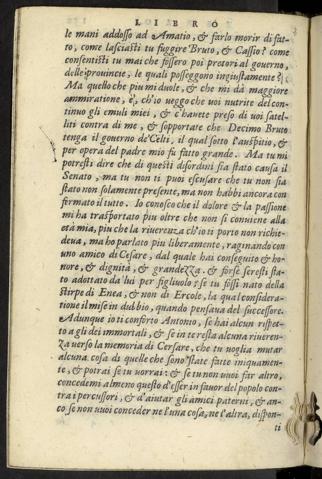 LIBRO
le mani addosso ad Amatio, & farlo morir di fat-
to, come lasciasti tu fuggire Bruto, & Cassio? come
consentisti tu mai che fossero poi pretori al gouerno,
delle prouincie, le quali posseggono ingiustamente?
Ma quello che piu mi duole, & che mi dà maggiore
ammiratione, è, ch'io ueggo che uoi nutrite del con-
tinuo gli emuli miei, & c'hauete preso di uoi satel-
liti contra di me, & sopportate che Decimo Bruto
tenga il gouerno de' Celti, il qual sotto l'auspitio, &
per opera del padre mio fu fatto grande. Ma tu mi
potresti dire che di questi disordini sia stato causa il
Senato, ma tu non ti puoi escusare che tu non sia
stato non solamente presente, ma non habbi ancora con
firmato il tutto. Io conosco che il dolore & la passione
mi ha trasportato piu oltre che non si conuiene alla
età mia, piu che la riuerenza ch'io ti porto non richie-
deua, ma ho parlato piu liberamente, ragionando con
uno amico di Cesare, dal quale hai conseguito & ho-
nore, & dignità, & grandezza. & forse seresti sta-
to adottato da lui per figliuolo: se tu fossi nato della
stirpe di Enea, & non di Ercole, la qual considera-
tione il mise in dubbio, quando pensaua del successore.
Adunque io ti conforto Antonio, se hai alcun rispet-
to a gli dei immortali, & se in te resta alcuna riueren-
za uerso la memoria di Cersare, che tu uoglia mutar
alcuna cosa di quelle che sono state fatte iniquamen-
te, & potrai se tu uorrai: & se tu non uuoi far altro,
concedemi almeno questo d'esser in fauor del popolo con-
tra i percussori, & d'aiutar gli amici paterni, & an-
co se non uuoi conceder ne l'una cosa, ne l'altra, dispon-
ti